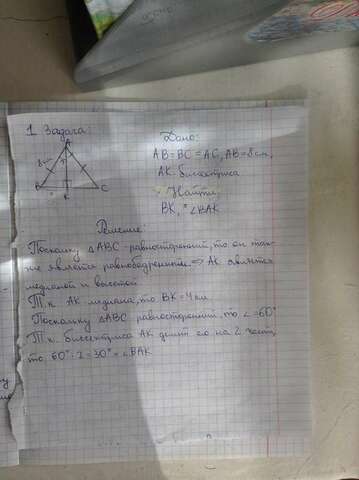 1 Задача:
Дано:
A
8
B
K
C
AB=BC=AC, AB=8см,
AK-биссектриса
Найти:
BK, ∠BAK
Решение:
Поскольку △ABC-равносторонний, то он так-
же является равнобедренным ⇒ AK является
медианой и высотой
Т.к. AK-медиана, то BK=4см
Поскольку △ABC равносторонний, то ∠=60°
Т.к. биссектриса AK делит его на 2 части,
то 60°:2=30°=∠BAK